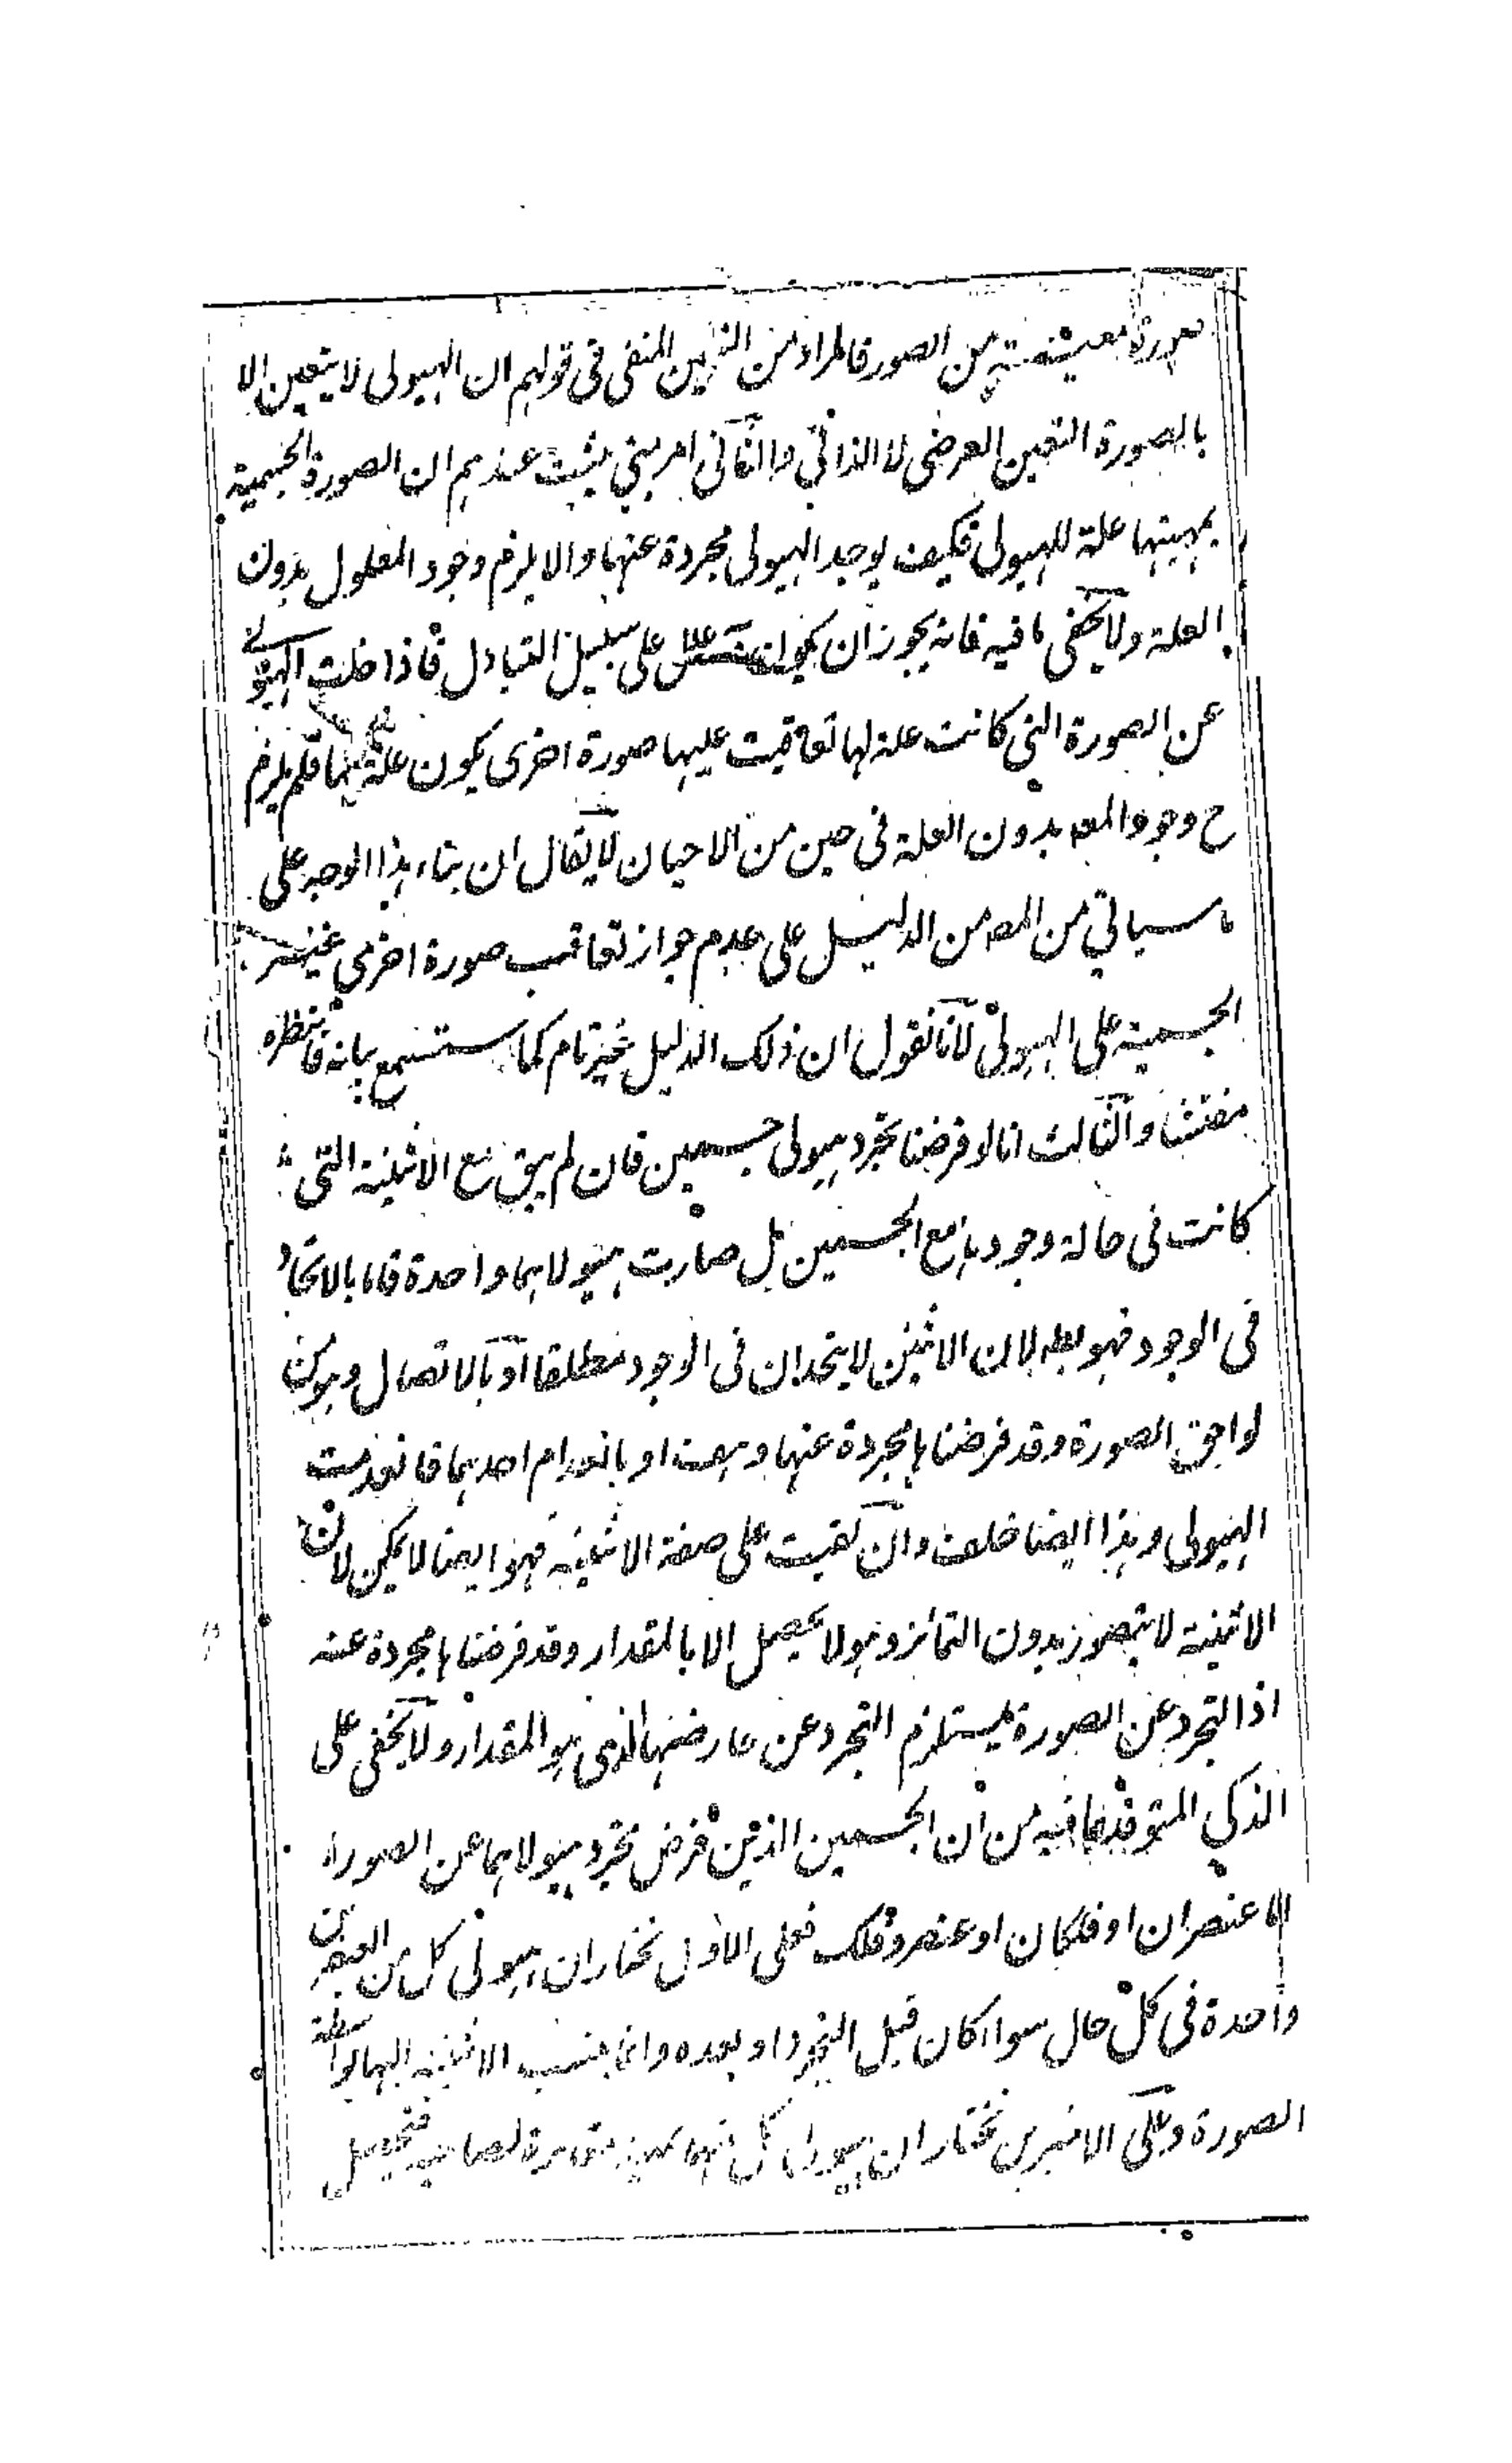 صورة معينة من الصور فالمراد من التعين المنفى فى قولهم ان الهيولى لا يتعين الا
بالصورة التعين العرضى لا الذاتي والثانى امر بينى يثبت عندهم ان الصورة الجسمية
بمهيتها علة للهيولى فكيف يوجد الهيولى مجردة عنها والا يلزم وجود المعلول بدون
العلة ولا يخفى ما فيه فانه يجوز ان يكون على سبيل التبادل فاذا خلت الهيولے
عن الصورة التي كانت علة لها تعاقبت عليها صورة اخرى يكون علة لها فلم يلزم
ح وجود المعه بدون العلة فى حين من الاحيان لا يقال ان بناء هذا الوجه على
ما سياتي من المصه من الدليل على عدم جواز تعاقب صورة اخرى غير
الجسمية على الهيولى لانا نقول ان ذلك الدليل غير تام كما ستسمع بيانه فانتظره
مفتشا والثالث انا لو فرضنا تجرد هيولى جسمين فان لم يبق مع الاثنينية التى
كانت فى حالة وجودها مع الجسمين بل صارت هيولاهما واحدة فاما بالاتحاد
فى الوجود فهو بطه لان الاثنين لا يتحدان فى الوجود مطلقا او بالاتصال وهو من
لواحق الصورة وقد فرضناها مجردة عنها وهف او بانعدام احدهما فانعدمت
الهيولى وهذا ايضا خلف وان بقيت على صفة الاثنينية فهو ايضا لا يمكن لان
الاثنينية لا يتصور بدون التمائز وهو لا يحصل الا بالمقدار وقد فرضناها مجردة عنه
اذا التجرد عن الصورة يستلزم التجرد عن عارضها الذى هو المقدار ولا يخفى على
الذكي المتوقد ما فيه من ان الجسمين الذين فرض تجرد هيولاهما عن الصورة
اما عنصران او فلكان او عنصر وفلك فعلى الاول نختار ان هيولى كل من العنصرين
واحدة فى كل حال سواء كان قبل التجرد او بعده وانما ينسب الاثنينية اليها بواسطة
الصورة وعلى الاخيرين نختار ان هيولى كل منهما فيحصل